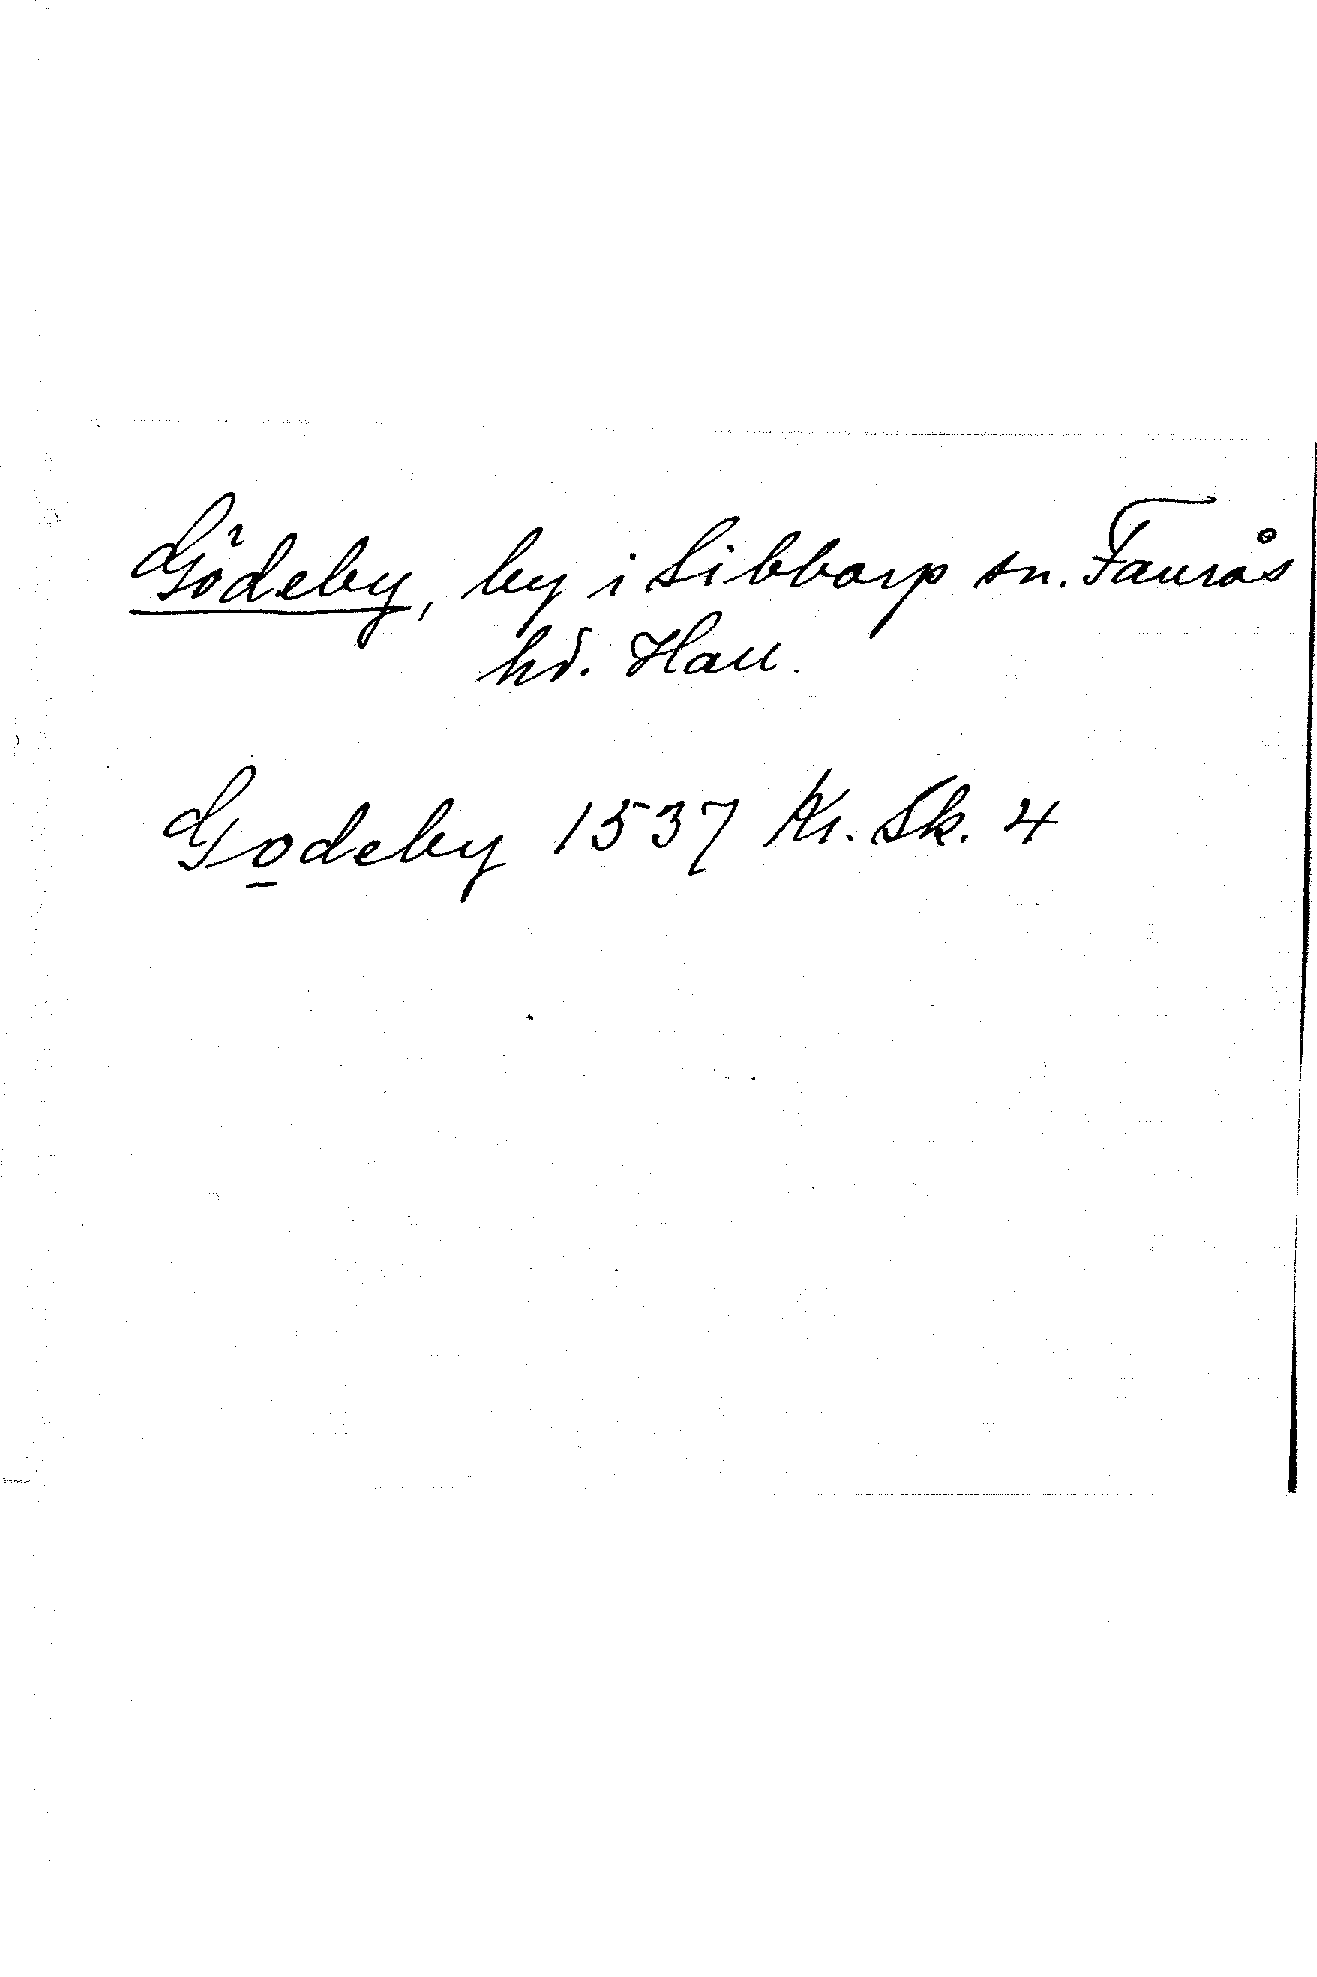 Gödeby, by i Sibbarp sn. Faurås
hd. Hall.
Godeby 1537 Kr. Sk. 4